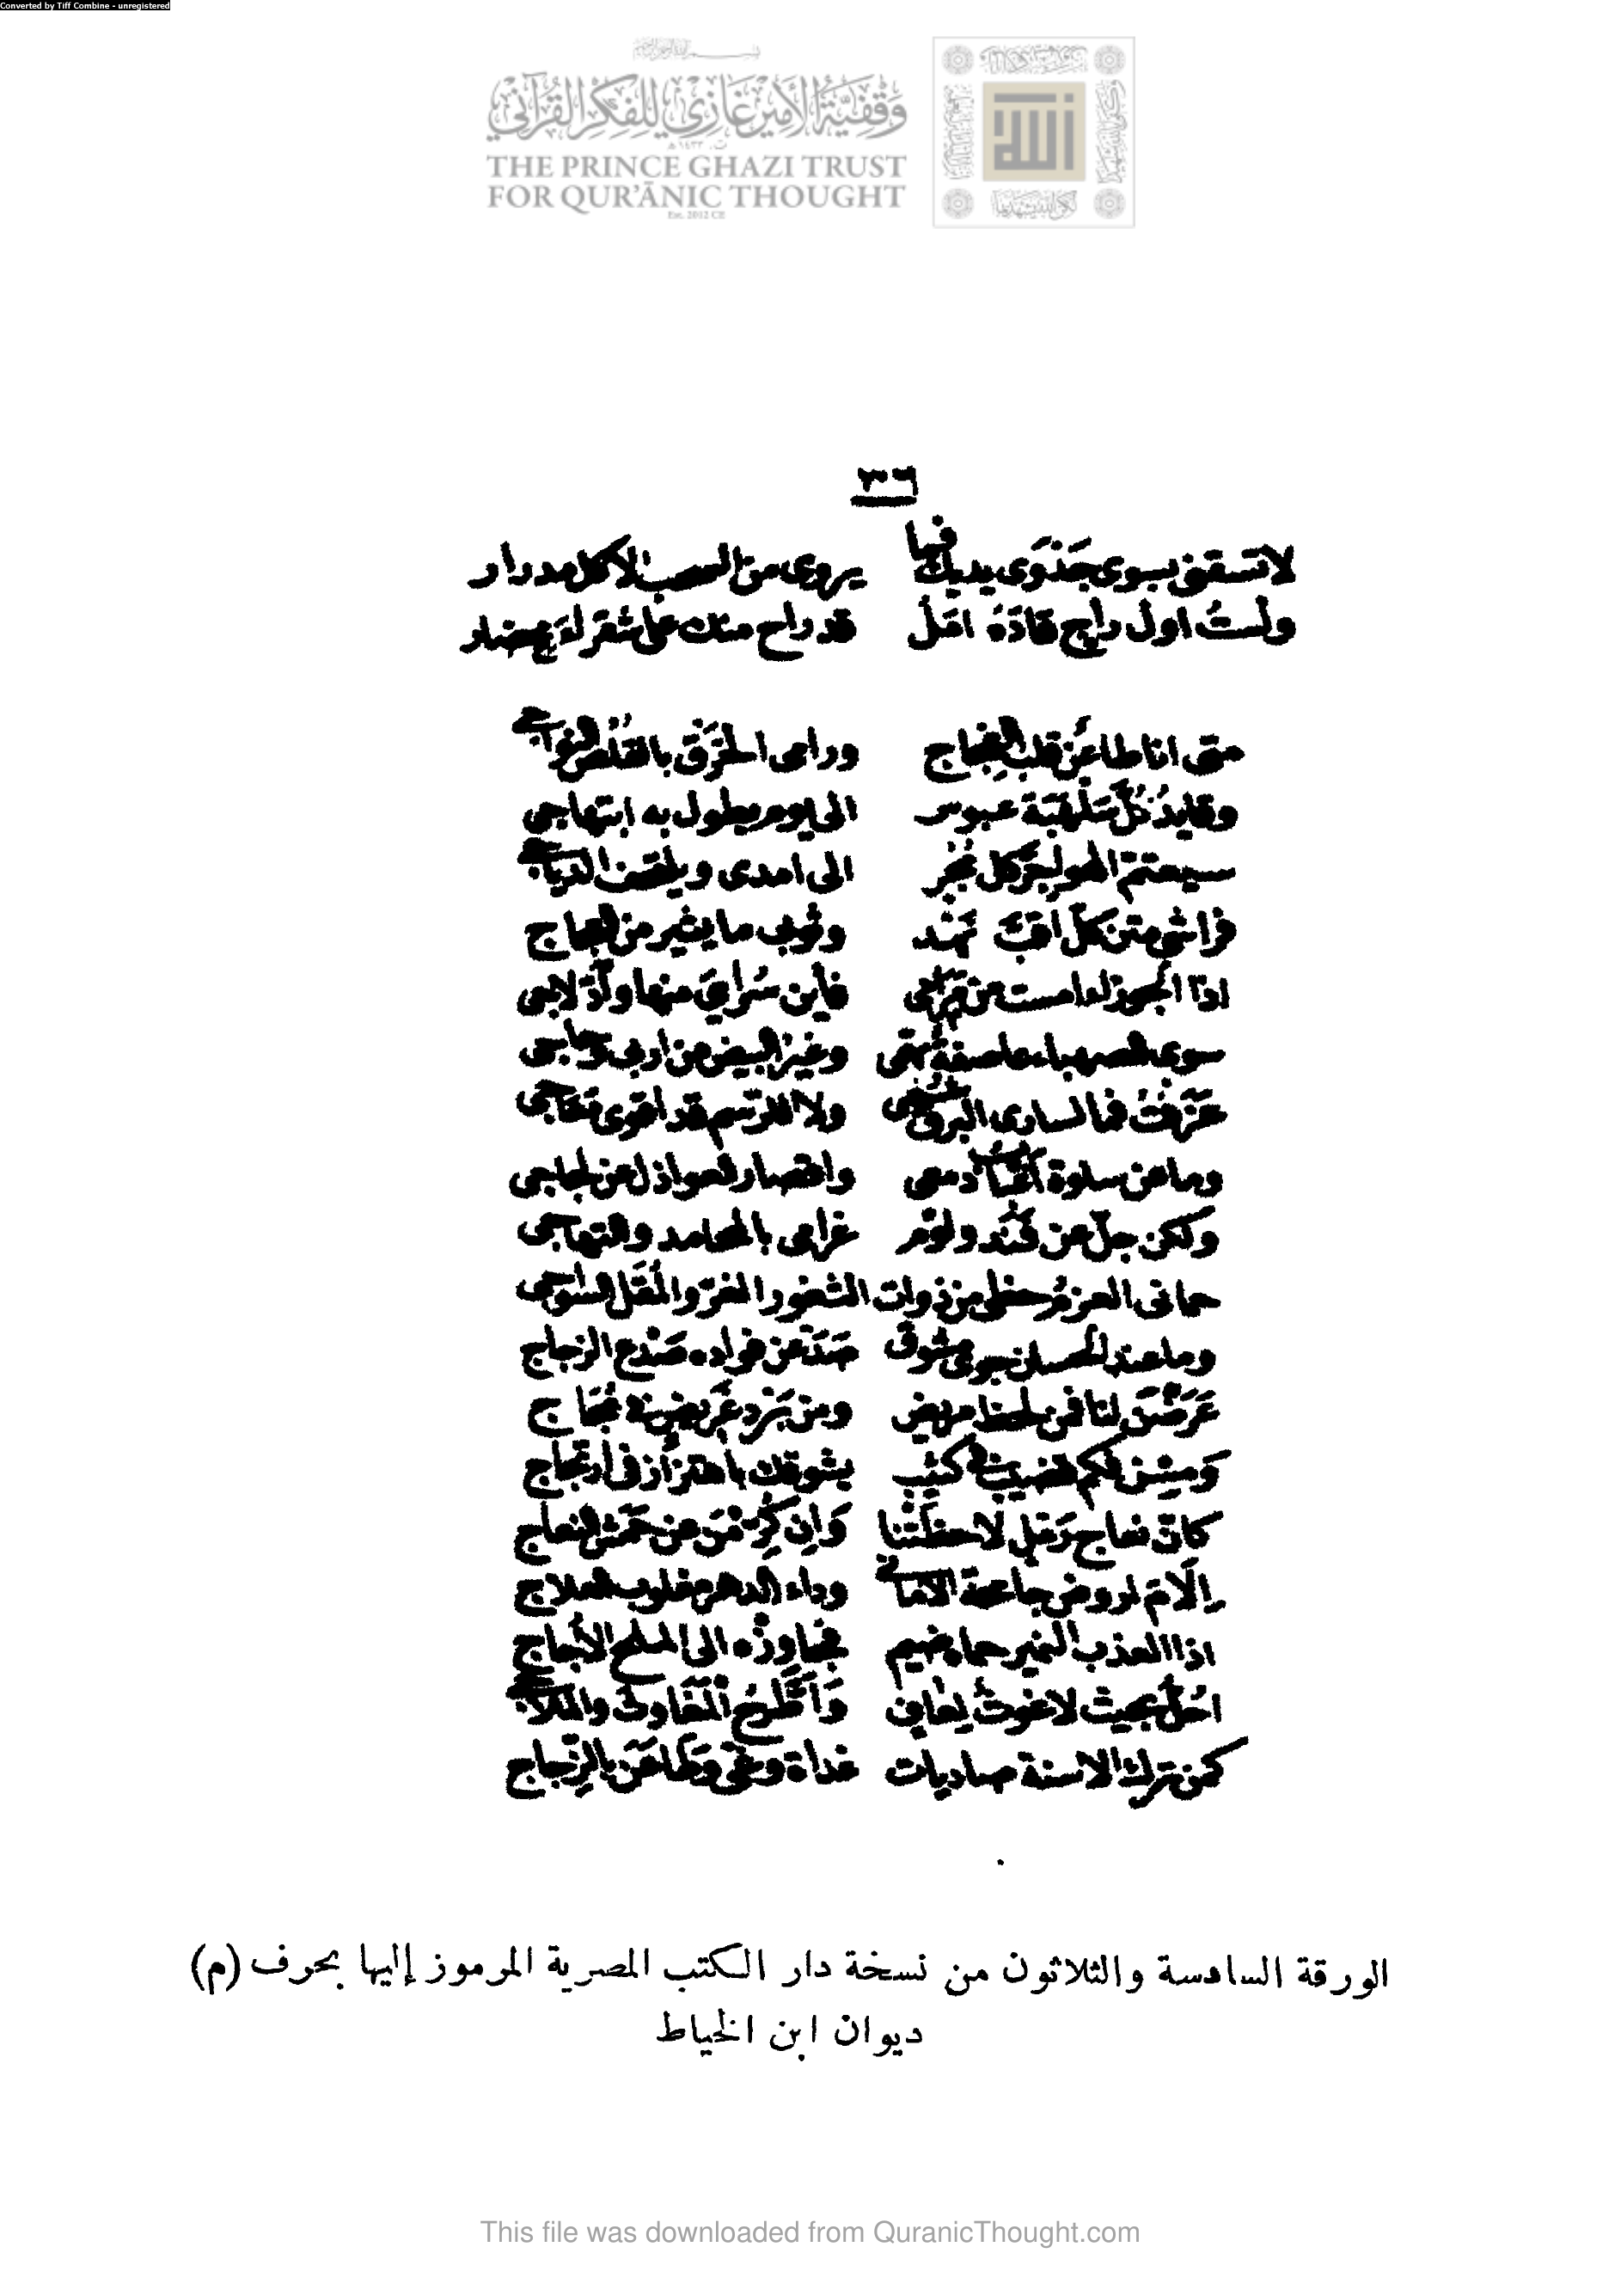 Converted by Tiff Combine - unregistered
وقفية الأمير غازي للفكر القرآني
THE PRINCE GHAZI TRUST
FOR QUR'ĀNIC THOUGHT
Est. 2012 CE
٣٦
لا تسقني بسوى جدوى يديك فما يروى من السحب الا كل مدرار
ولست اول راج قاده امل قد راح منك على شقراء
متى انا طاعن قلب الفجاج ورامى الخرق بالقلص النواجي
وقايد كل سلهبة عبوس الى يوم يطول به ابتهاجي
الى امدى الدياجي
فراشي متن كل اقب نهد وثوبي ما يثير من العجاج
فأين سراي منها وادلاجي
سوى الصهباء عاصفة بهمي وغير البيض من اربي وحاجي
عزفت فما لسارى البرق ولا للرسم قد اقوى معاجي
وما عن سلوة دمعي واقصار العواذل عن لجاجي
ولكن جل عن فند ولوم غرامي بالمحامد والتهاجي
حماني العزم حظي من ذوات الثغور الغر والمقل السواجي
وما عند الحسان جوى مشوق صدعن فؤاده صدع الزجاج
عرضن لنا فمن لحظ مريض ومن برد غريض في مجاج
ومسن فكم قضيب في كثيب يشوقك باهتزاز في ارتجاج
كان نعاج رمل لاحظتنا وان كرمن عن حمش النعاج
إلام اروض جامحة الاماني وداء الدهر مغلوب العلاج
اذا العذب النمير حماه ضيم فجاوزه الى الملح الأجاج
احل بحيث لا غوث لعاف وأطرح المفاوث والملاجي
كمن ترك الاسنة صاديات غداة وغى وطاعن بالزجاج
الورقة السادسة والثلاثون من نسخة دار الكتب المصرية المرموز إليها بحرف (م)
ديوان ابن الخياط
This file was downloaded from QuranicThought.com